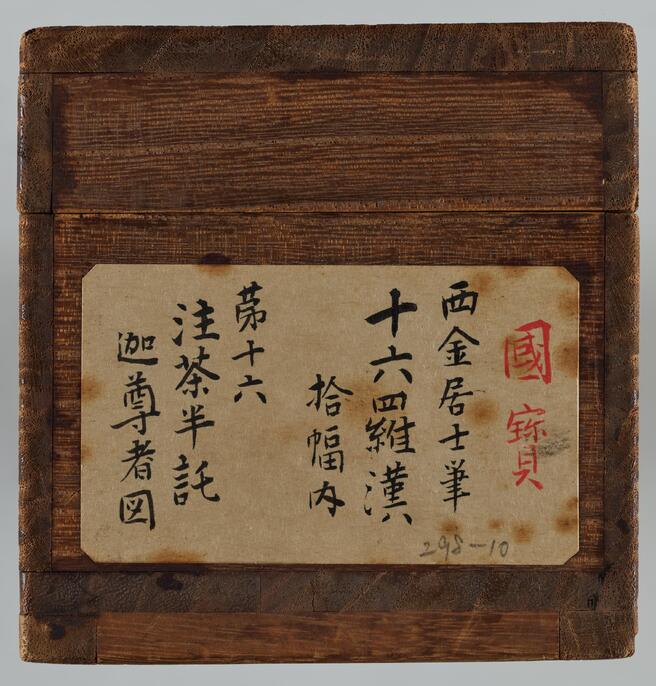 國寳
西金居士筆
十六羅漢
拾幅内
第十六
注茶半託
迦尊者図
298-10